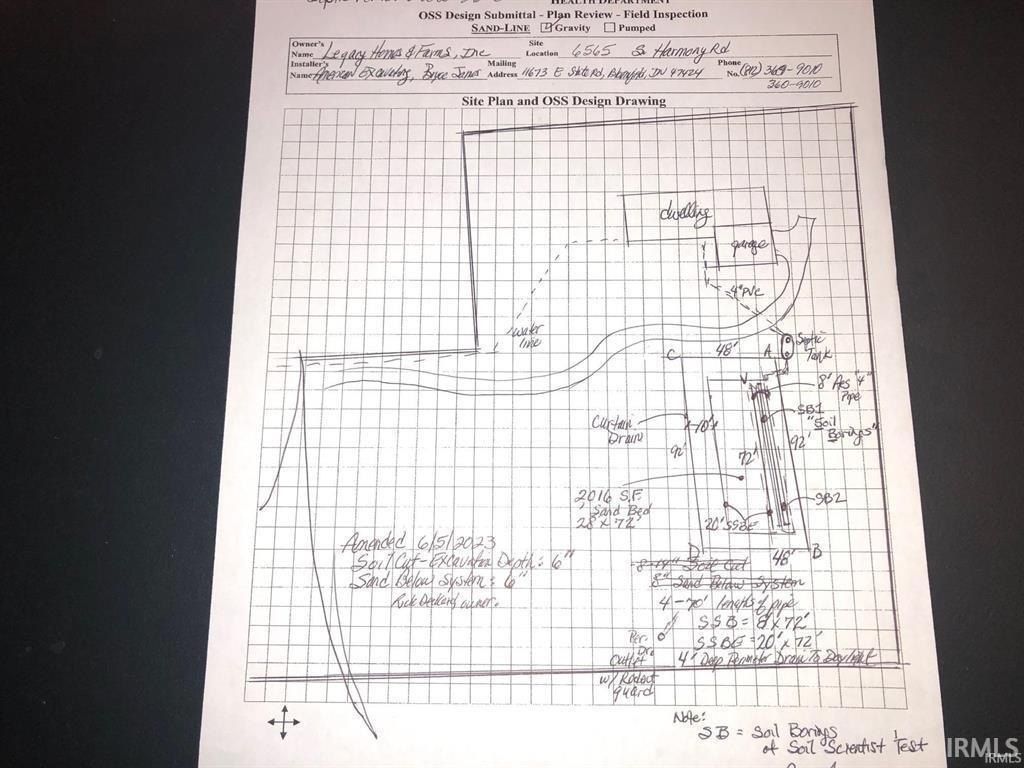 HEALTH DEPARTMENT
OSS Design Submittal - Plan Review - Field Inspection
SAND-LINE Gravity Pumped
Owner's Name Legacy Homes & Farms, Inc Site Location 6565 So Harmony Rd
Installer's Name American Excavating, Bryce Jones Mailing Address 11673 E State Rd, Bloomfield, IN 47424 Phone No. (812) 360-9010
360-9010
Site Plan and OSS Design Drawing
dwelling
garage
4" PVC
water line
Septic Tank
C 48' A
V
8' Aes "4" Pipe
SB1
"Soil Borings"
Curtain Drain
10'
92'
72'
92'
2016 S.F.
Sand Bed
28' x 72'
SB2
20' SSBE
D 48' B
Amended 6/5/2023
Soil Cut-Excavation Depth: 6"
Sand Below System: 6"
Rick Deckard owner.
8-14" Soil Cut
8" Sand Below System
4 - 70' lengths of pipe
SSB = 8' x 72'
SSBE = 20' x 72'
4' Deep Perimeter Drain To Daylight
Per. Dr. Outlet w/ Rodent guard
Note:
SB = Soil Borings
of Soil Scientist Test
IRMLS
IRMLS